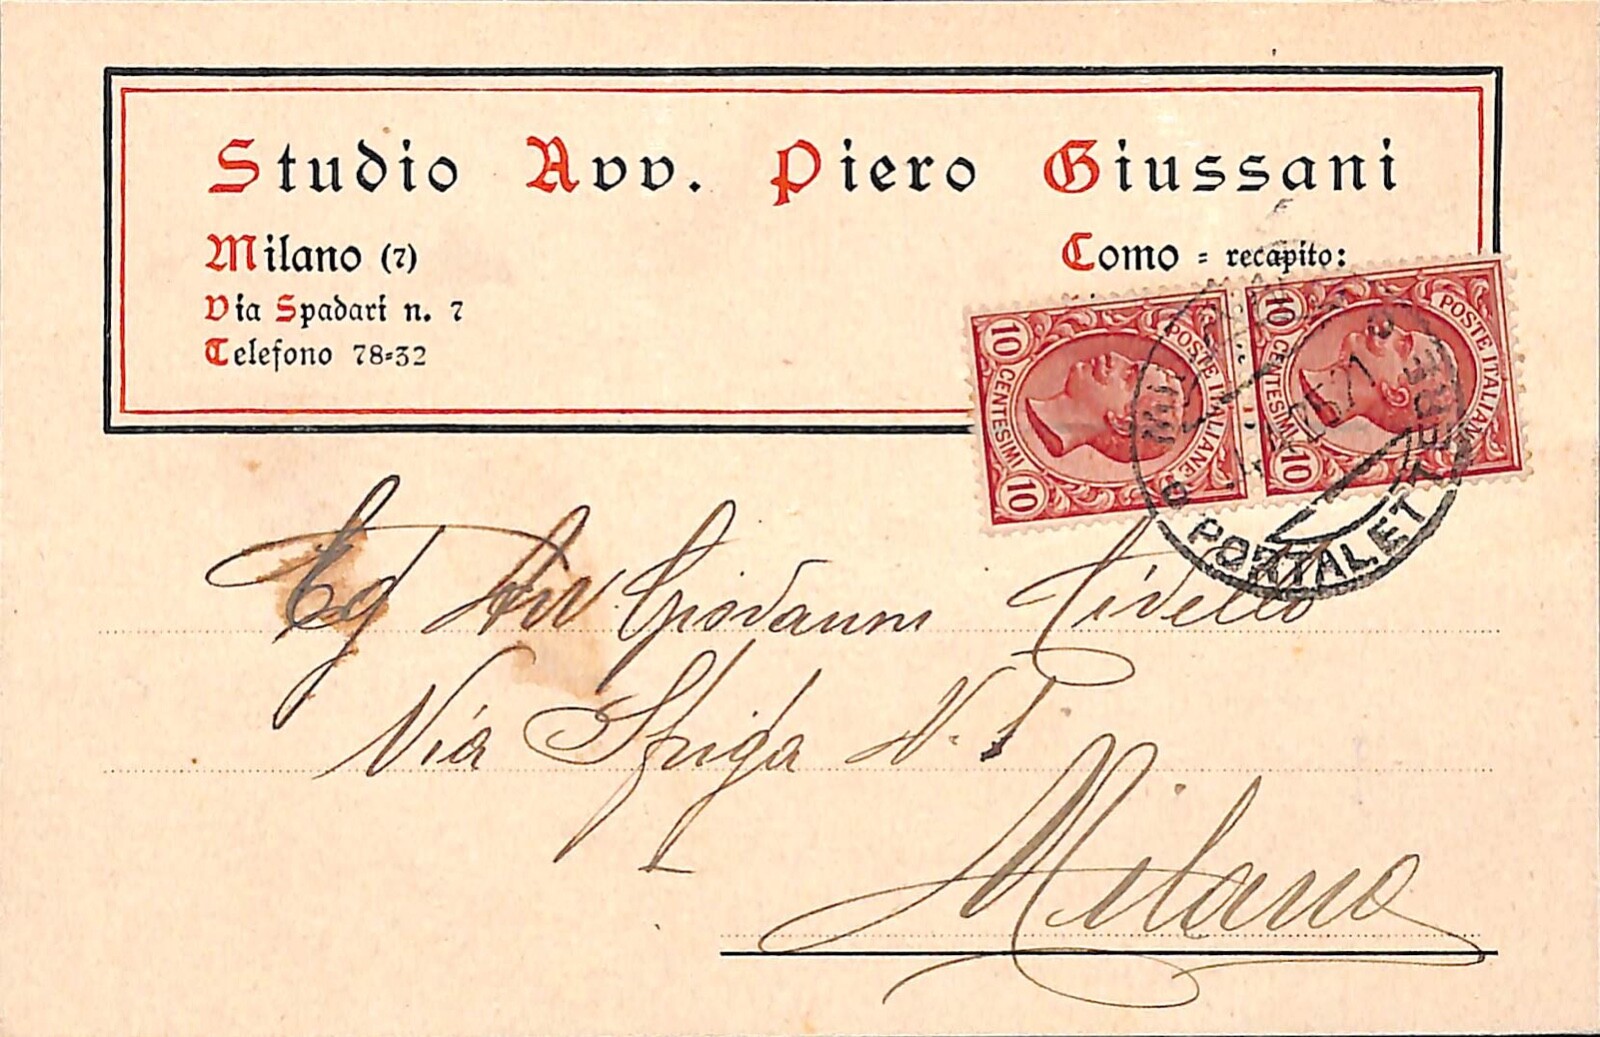 Studio Avv. Piero Giussani
Milano (7)
Via Spadari n. 7
Telefono 78=32
Como = recapito:
10 CENTESIMI 10
POSTE ITALIANE
10 CENTESIMI 10
POSTE ITALIANE
PORTALETTERE
Eg Avv Giovanni
Via Spiga N. 1
Milano